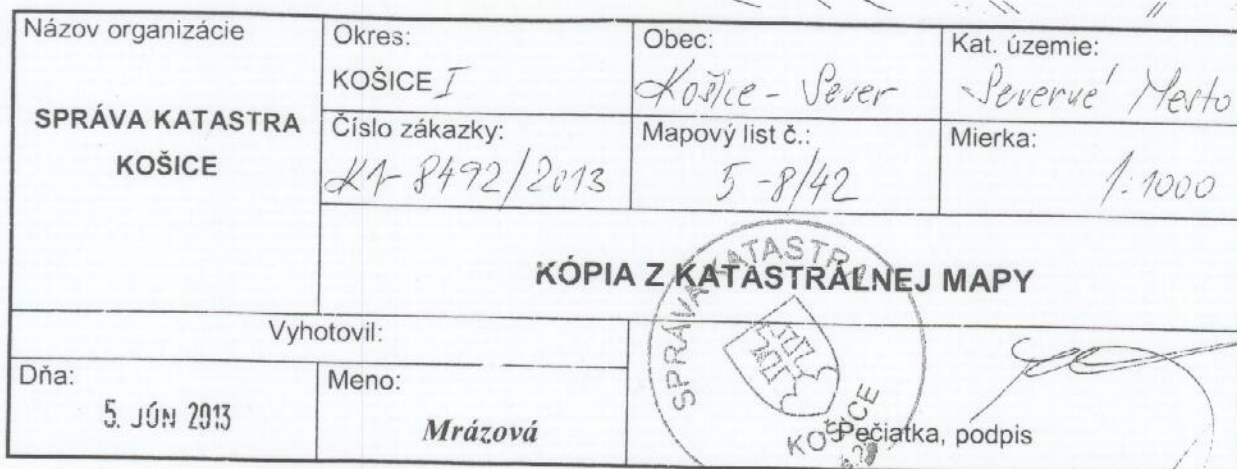 Názov organizácie
SPRÁVA KATASTRA
KOŠICE
Okres:
KOŠICE I
Obec:
Košice - Sever
Kat. územie:
Severné Mesto
Číslo zákazky:
K1-8492/2013
Mapový list č.:
5-8/42
Mierka:
1:1000
KÓPIA Z KATASTRÁLNEJ MAPY
Vyhotovil:
Dňa:
5. JÚN 2013
Meno:
Mrázová
SPRÁVA KATASTRA
KOŠICE
Pečiatka, podpis